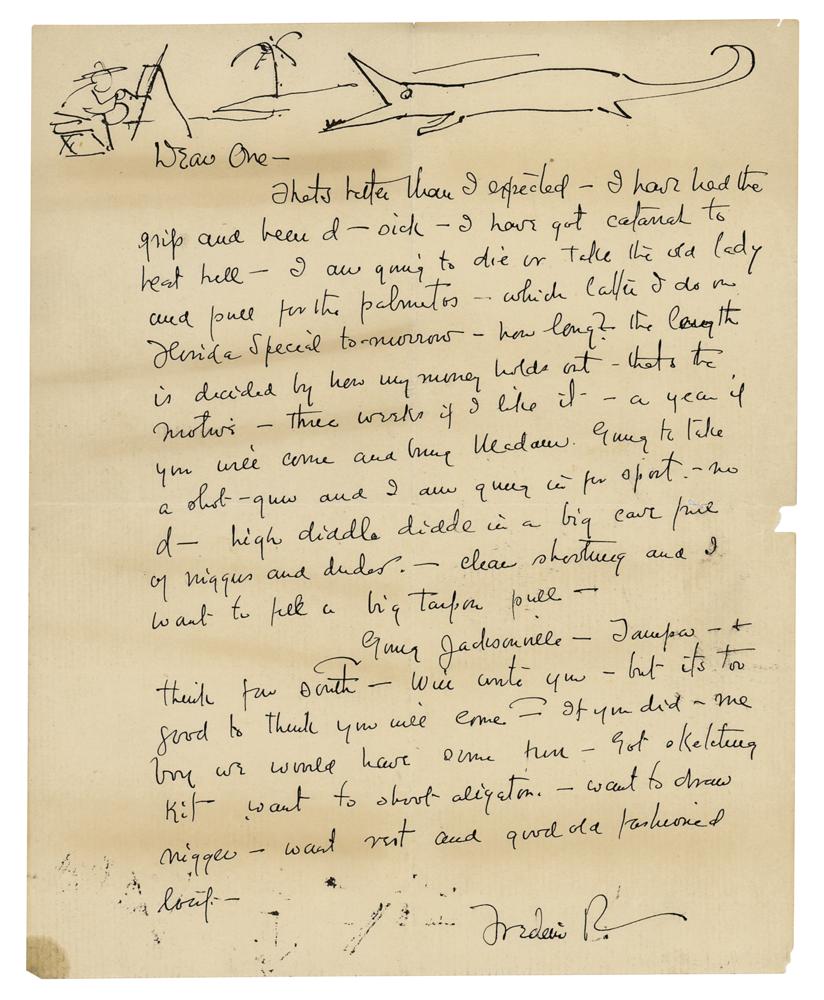 Dear One—
Thats better than I expected — I have had the
grip and been d— sick — I have got catarrah to
beat hell — I am going to die or take the old lady
and pull for the palmetos — which latter I do on
Florida Special to-morrow — how long? the length
is decided by how my money holds out — thats the
motive — three weeks if I like it — a year if
you will come and bring Madam. Going to take
a shot-gun and I am going in for sport. — no
d— high diddle diddle in a big cave full
of niggers and dudes. — clean shooting and I
want to pull a big Tarpon pull —
Going Jacksonville — Tampa — +
think far South — Will write you — but its too
good to think you will come — If you did — me
boy we would have some fun — Got sketching
Kit want to shoot aligators. — want to draw
nigger — want rest and good old fashioned
loaf. —
Frederic R.